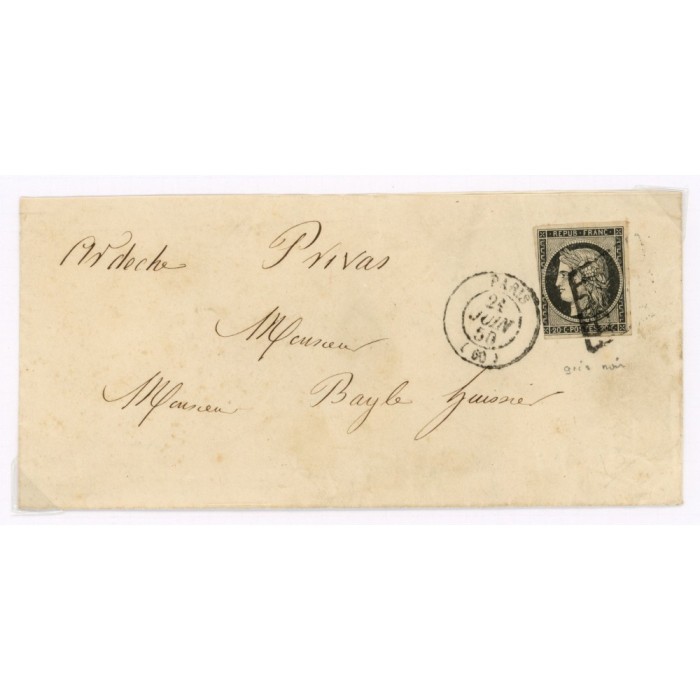 REPUB. FRANC.
Ardeche Privas
PARIS
24
JUIN
50
(60)
20 C POSTES 20 C
Monsieur
gris noir
Monsieur Bayle huissier